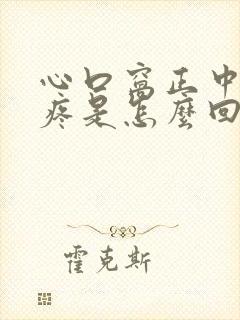 心口窩正中
疼是怎麼回
霍克斯